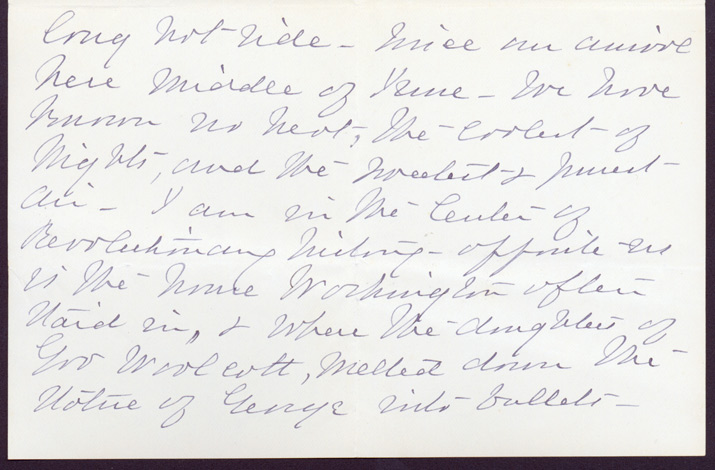 long hot ride – Since our arrival
here middle of June – we have
known no heat, the coolest of
Nights, and the sweetest & purest
air – I am in the Center of
Revolutionary history – opposite us
is the house Washington often
staid in, & where the daughters of
Gov Woolcott, melted down the
statue of George into bullets –